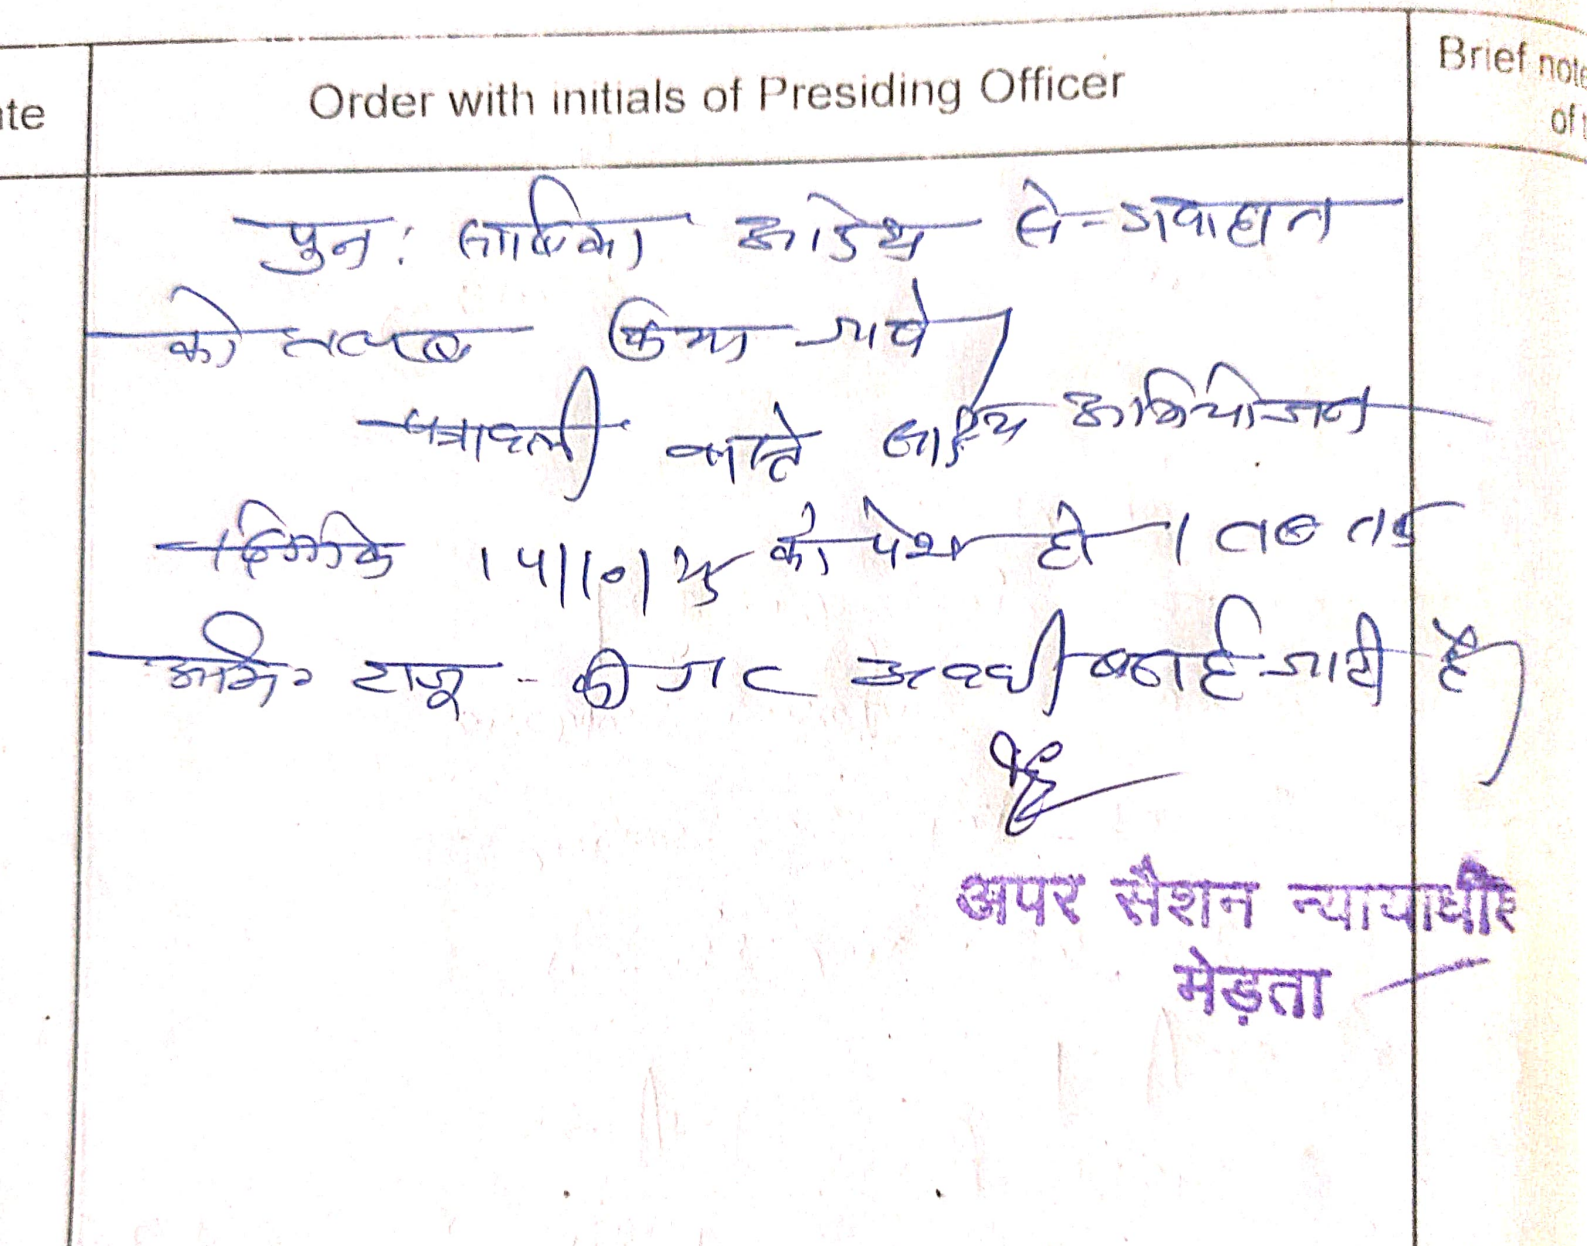 ate
Order with initials of Presiding Officer
Brief note
of t
पुनः साबिका आदेश से गवाहान
को तलब किया जावे।
पत्रावली वास्ते साक्ष्य अभियोजन
दिनांक को पेश हो। तब तक
अभि० राजू की अवधी बढाई जाती है।
अपर सैशन न्यायाधीश
मेड़ता